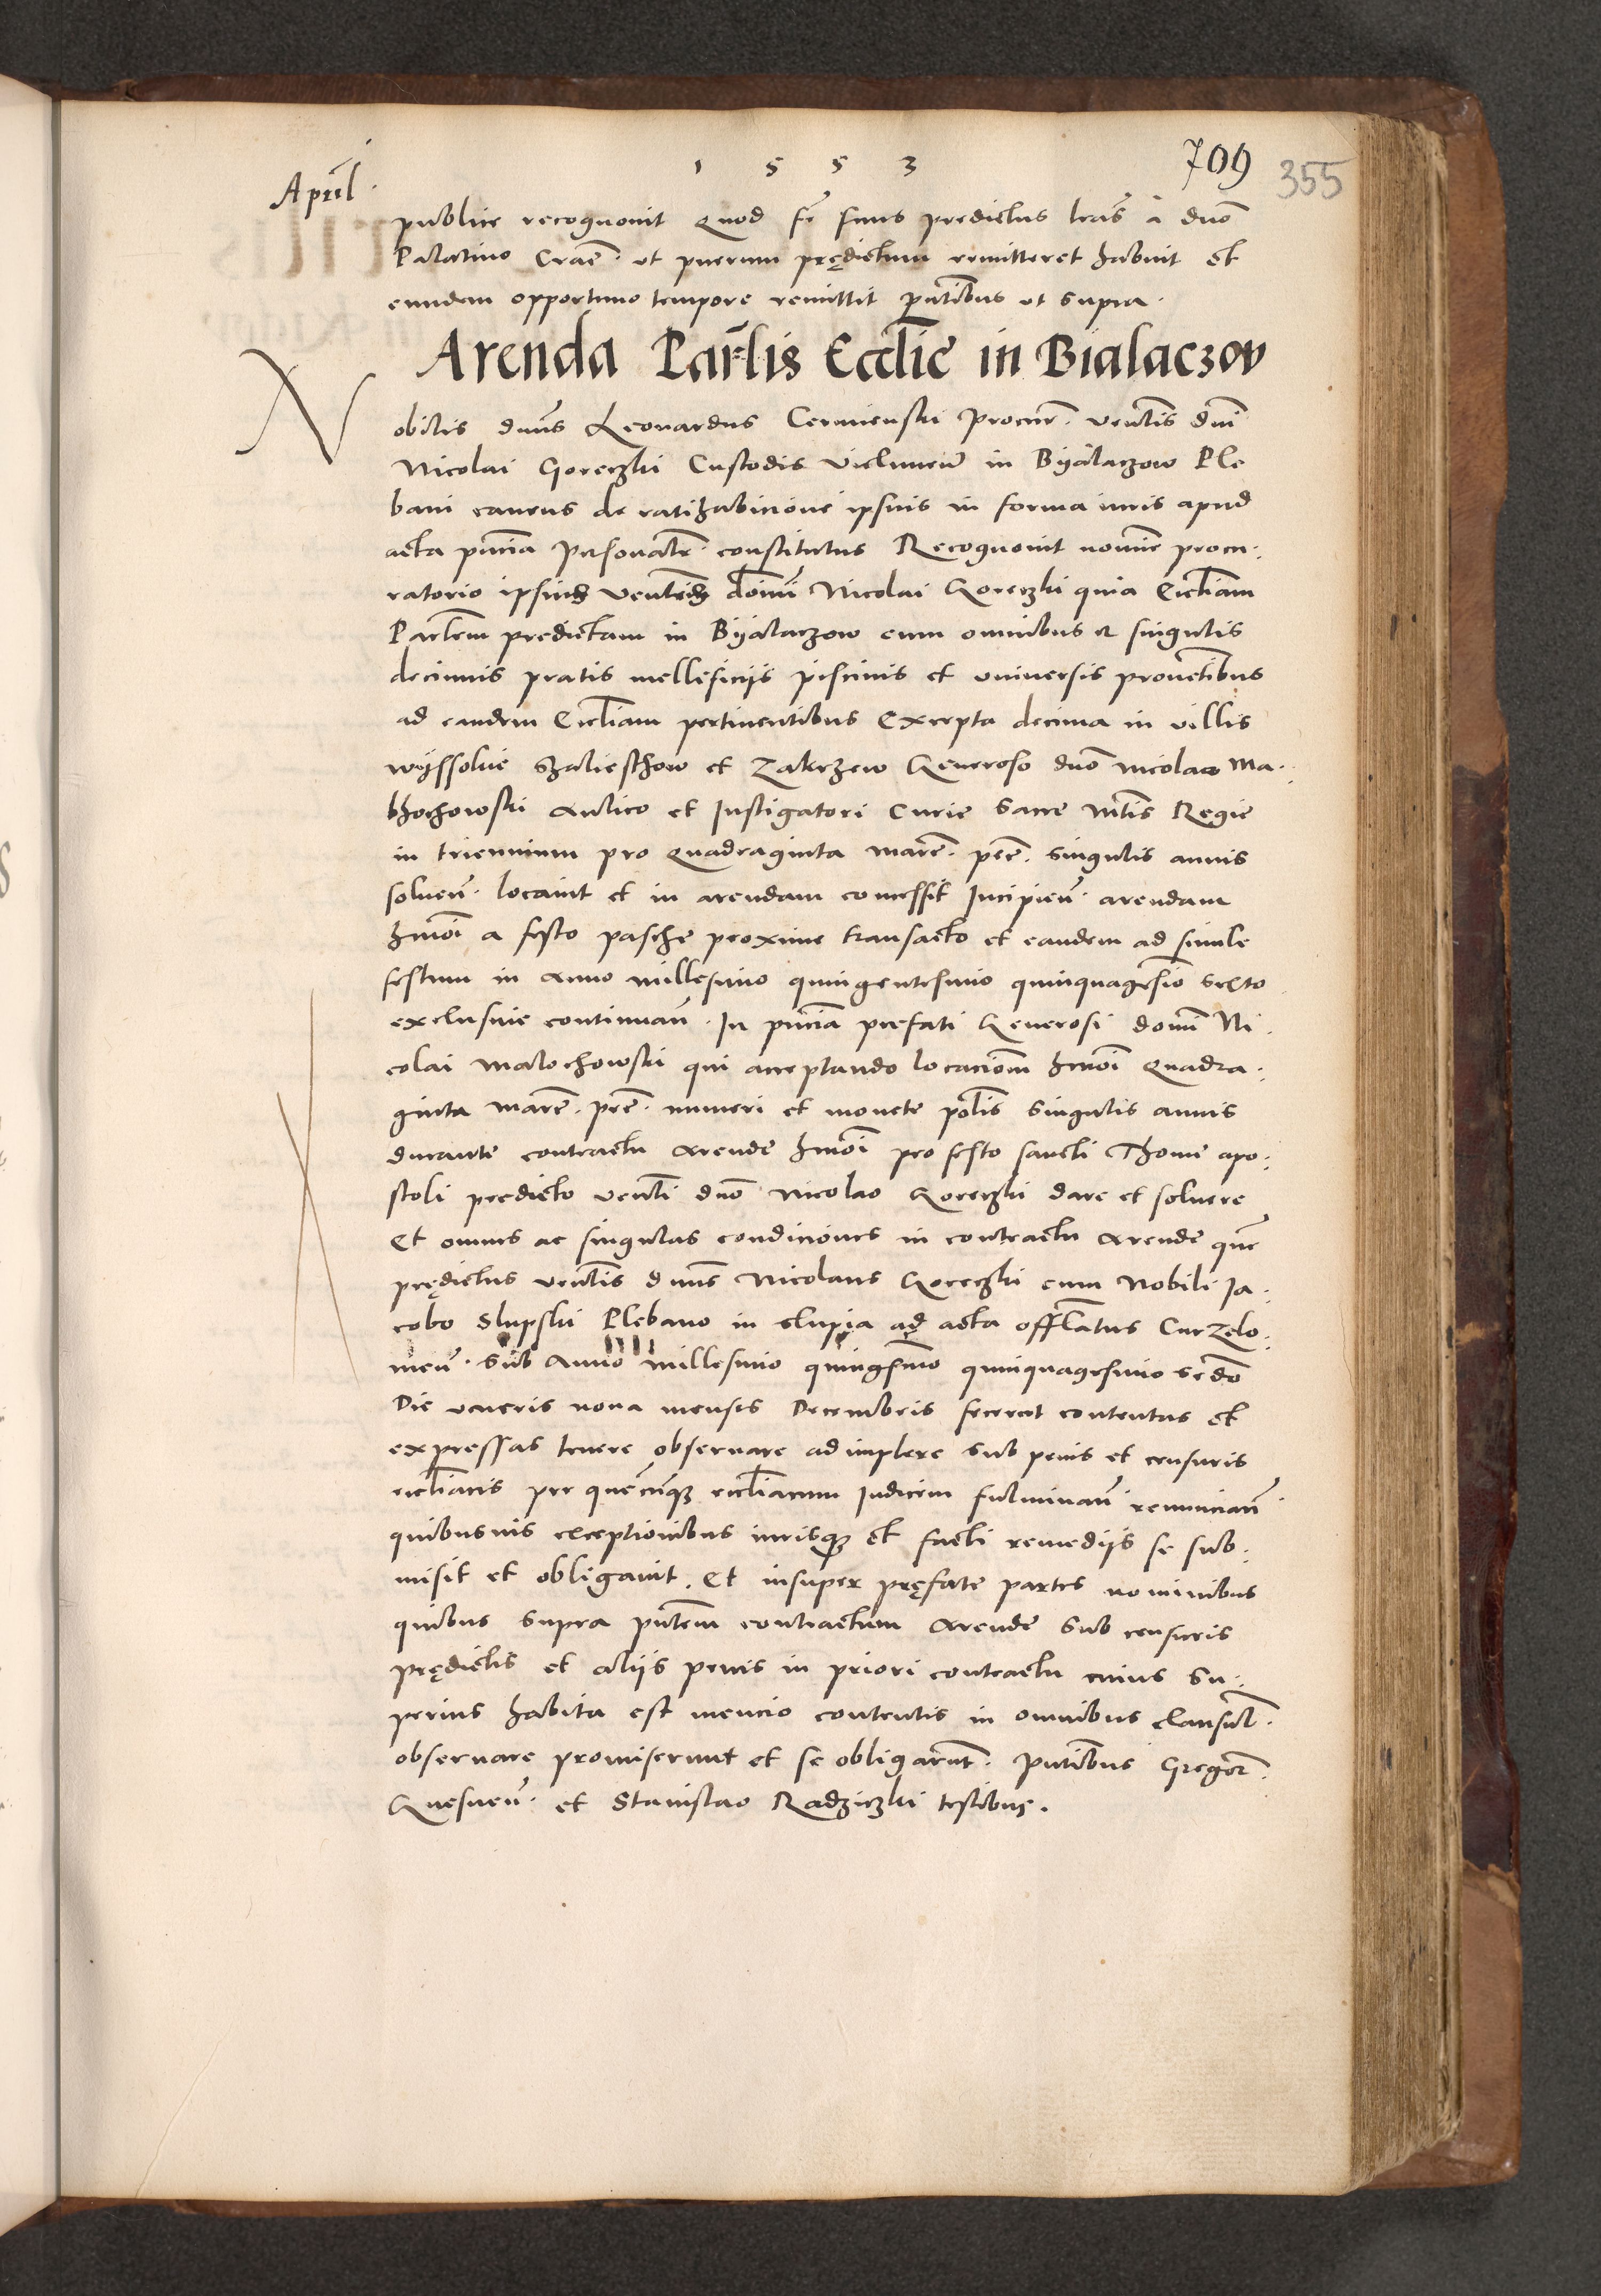 1 5 5 3
709
355
Apríl
publice recognovit Quod fr̃ suus predictus lrãs a dnõ
Palatino Cracẽ. ut puerum prędictum remitteret habuit Et
eundem opportuno tempore remittit pñtibus ut supra.
Arenda Parlĩs Ecclĩe in Bialaczov
Nobilis dnũs Leonardus Cerminski Procur̃. venẽlis dnĩ
Nicolai Goreczki Custodis vielunẽn in Byalaczow Ple
bani cavens de ratihabicione ipsius in forma iuris apud
acta pñcia personalr̃. constitutus Recognovit nomine procu:
ratorio ipsius venẽlis domĩni Nicolai Goreczki quia Ecclĩam
Parlẽm predictam in Byalaczow cum omnibus et singulis
decimis pratis mellificijs piscinis et universis proventĩbus
ad eandem Ecclĩam pertinentibus Excepta decima in villis
wyssokie Szalieschow et Zakrzew Generoso dnõ Nicolao Ma:
lhochowski Aulico et Instigatori Curie Sacre Mtĩs Regie
in triennium pro Quadraginta marc̃. pec̃. singulis annis
solveñ. locavit et in arendam concessit Incipieñ. arendam
hmõi a festo pasche proxime transacto et eandem ad simile
festum in Anno millesimo quingentesimo quinquagesĩo sexto
exclusive continuañ. In pñcia prefati Generosi domĩ Ni:
colai Malochowski qui acceptando locaciõem hmõi Quadra:
ginta marc̃. pec̃. numeri et monete polĩs singulis annis
durante contractu Arende hmõi pro festo sancti Thome apo:
stoli predicto venẽli dnõ Nicolao Goreczki dare et solvere
Et omnes ac singulas condiciones in contractu Arende quẽ
prędictus venẽlis dnũs Nicolaus Goreczki cum Nobili Ja:
cobo Slupski Plebano in Slupia ad acta offlãtus Curzelo:
vieñ. sub Anno millesimo quingẽsimo quinquagesimo secdõ
Die veneris nona mensis Decembris fecerat contentas et
expressas tenere observare adimplere sub penis et censuris
ecclĩacis per quemcũnque ecclĩacum Iudicem fulminañ renunciañ
quibusvis exceptionibus iurisque Et facti remedijs se sub:
misit et obligavit. Et insuper pręfate partes nominibus
quibus supra pñtem contractum Arende sub censuris
prędictis et alijs penis in priori contractu cuius su:
perius habita est mencio contentis in omnibus clausul̃.
observare promiserunt et se obligarũnt. Pñtibus Gregor̃.
Gnesneñ. et Stanislao Radziczki testibus.